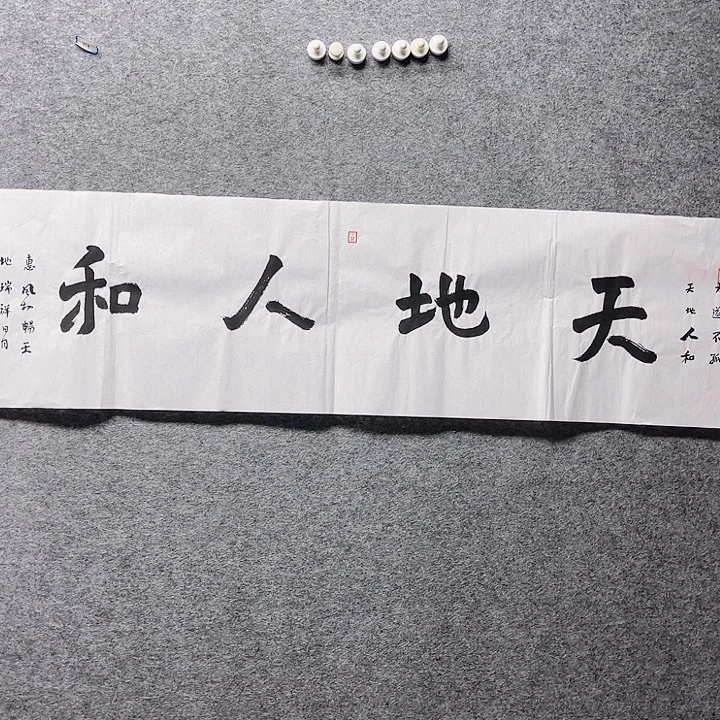 道不孤
天地人和
天地人和
惠風和暢天
地瑞祥日月